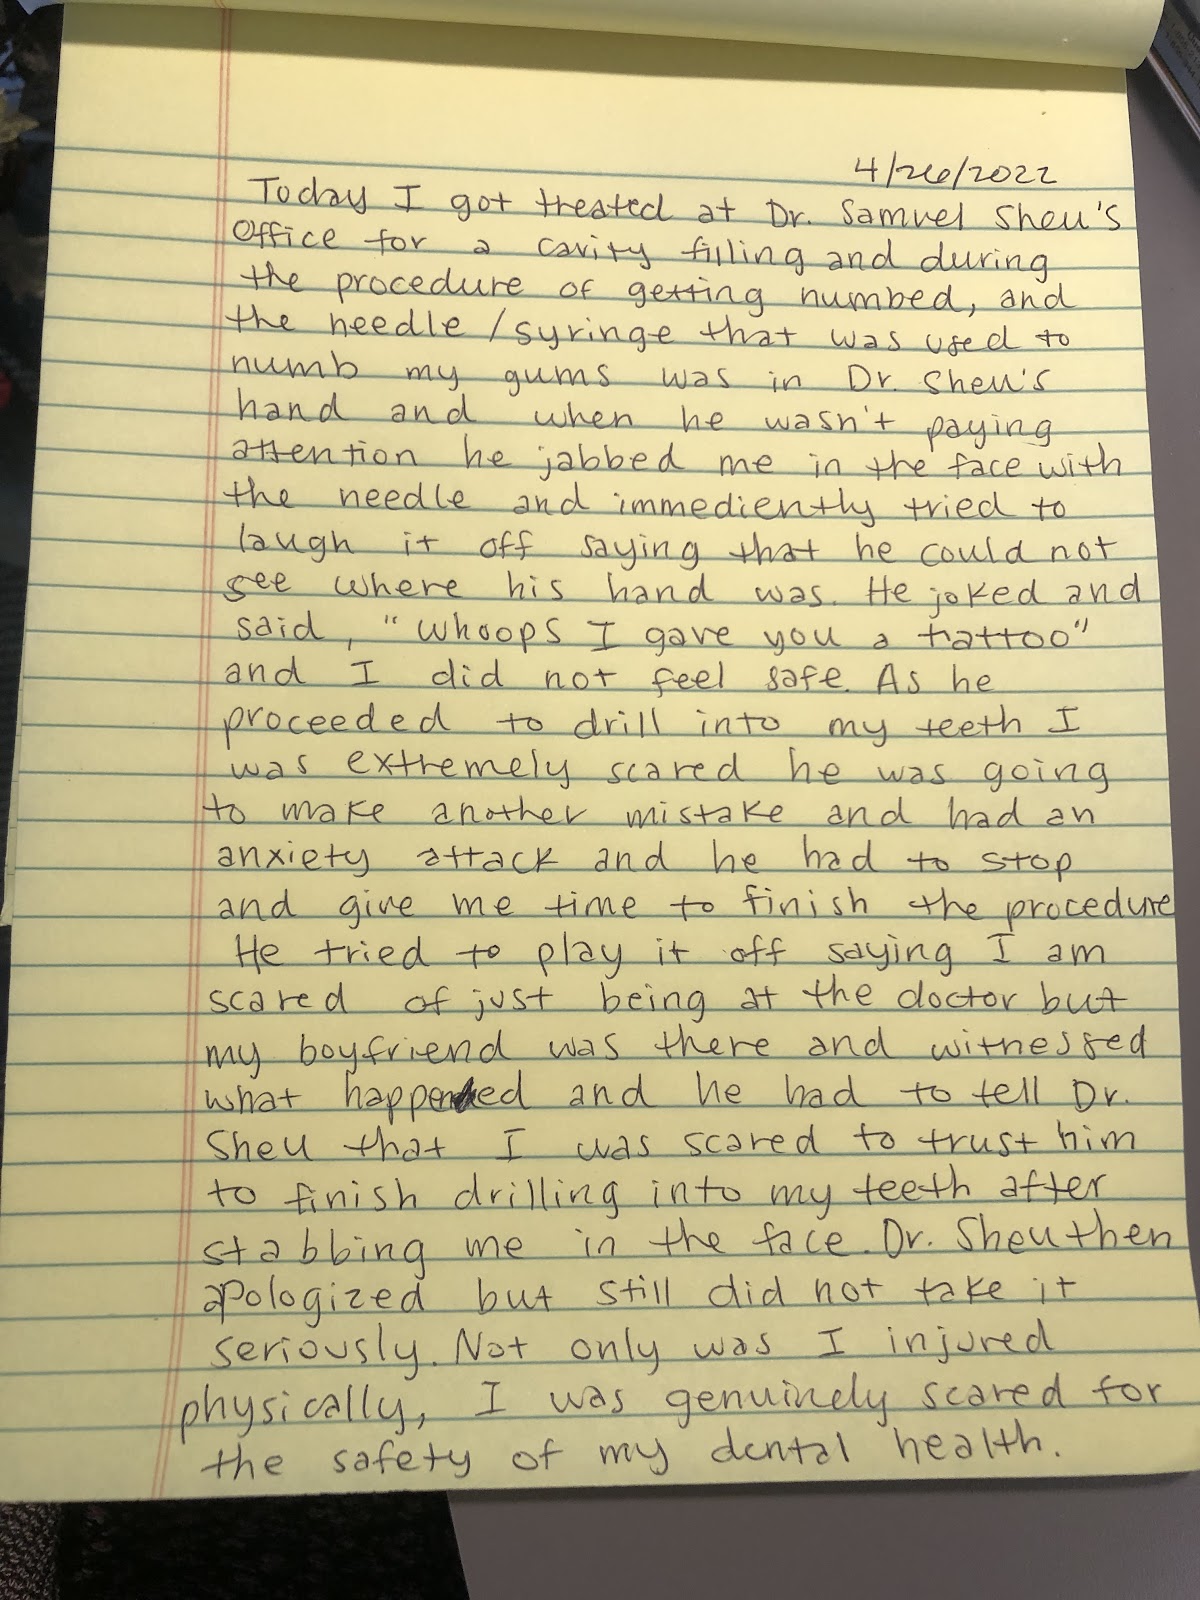 4/26/2022
Today I got treated at Dr. Samuel Sheu's
Office for a cavity filling and during
the procedure of getting numbed, and
the needle/syringe that was used to
numb my gums was in Dr. Sheu's
hand and when he wasn't paying
attention he jabbed me in the face with
the needle and immediently tried to
laugh it off saying that he could not
see where his hand was. He joked and
said, "Whoops I gave you a tattoo"
and I did not feel safe. As he
proceeded to drill into my teeth I
was extremely scared he was going
to make another mistake and had an
anxiety attack and he had to stop
and give me time to finish the procedure
He tried to play it off saying I am
scared of just being at the doctor but
my boyfriend was there and witnessed
what happened and he had to tell Dr.
Sheu that I was scared to trust him
to finish drilling into my teeth after
stabbing me in the face. Dr. Sheu then
apologized but still did not take it
seriously. Not only was I injured
physically, I was genuinely scared for
the safety of my dental health.